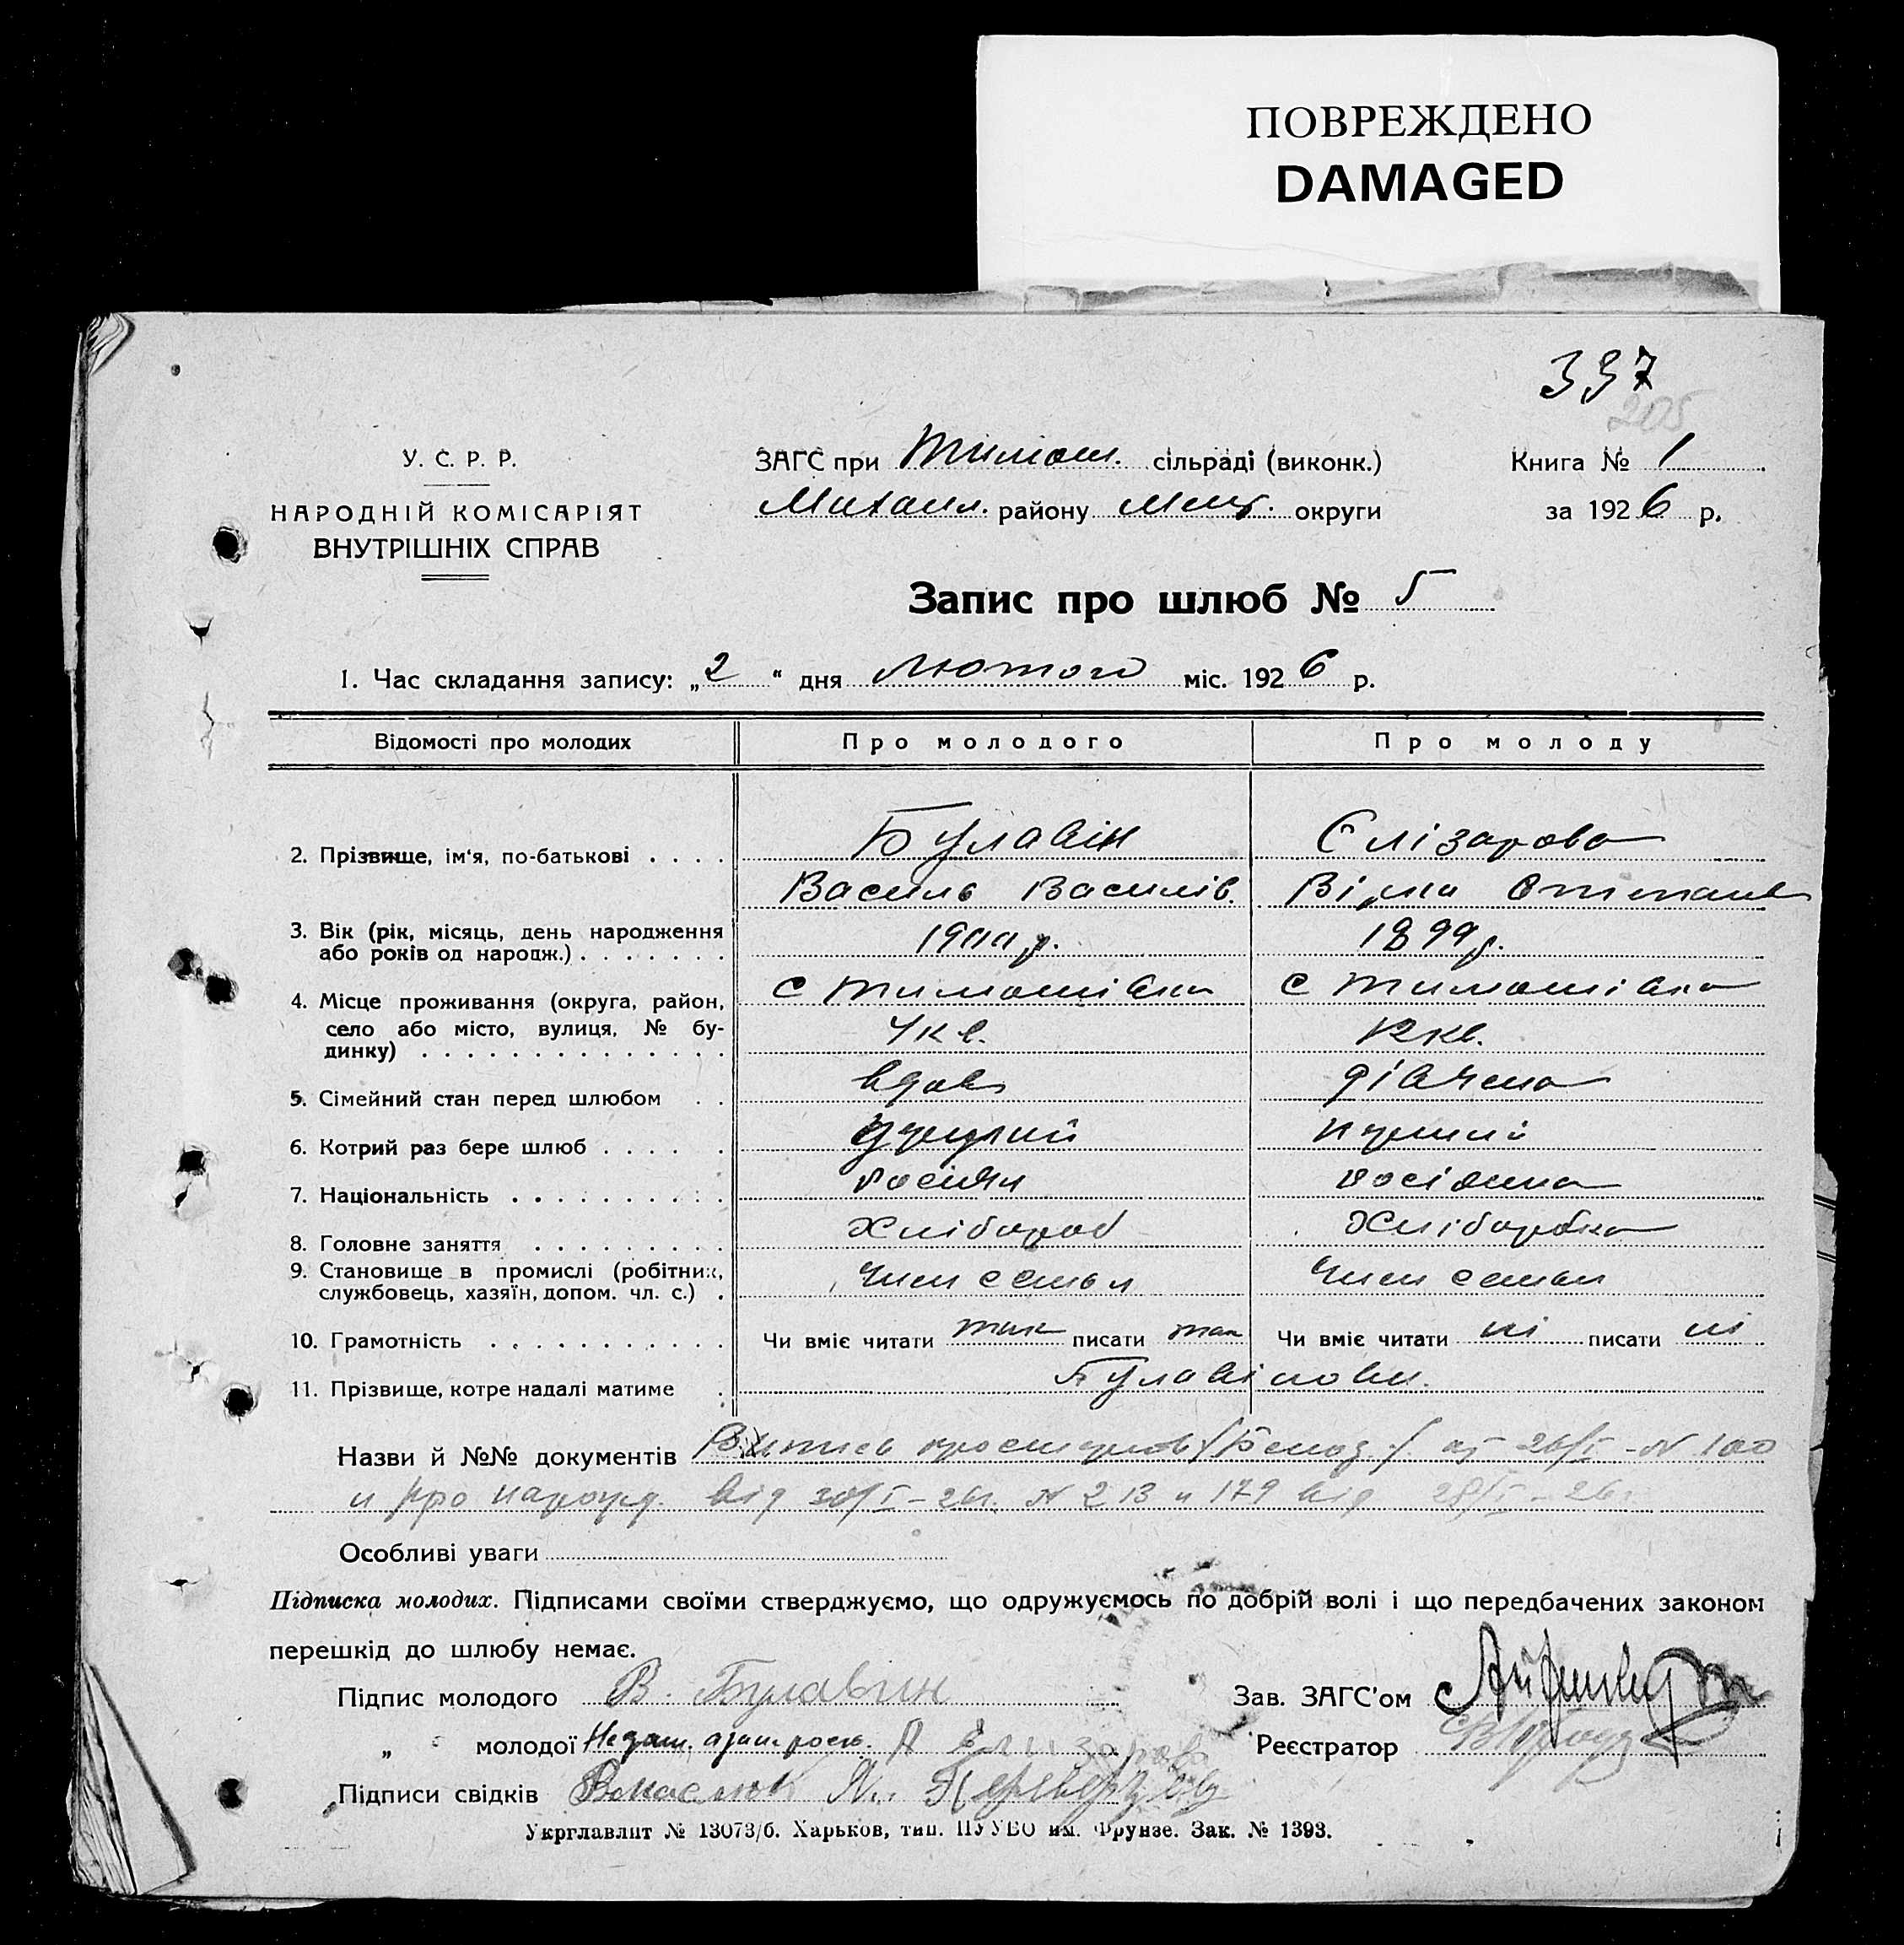 ПОВРЕЖДЕНО
DAMAGED
337
205
У. С. Р. Р.
НАРОДНІЙ КОМІСАРІЯТ
ВНУТРІШНІХ СПРАВ
ЗАГС при Тимош. сільраді (виконк.)
Михайл. району Меліт. округи
Книга № 1
за 1926 р.
Запис про шлюб № 5
1. Час складання запису: „2“ дня лютого міс. 1926 р.
Відомості про молодих Про молодого Про молоду
2. Прізвище, ім'я, по-батькові . . . . Булавін Єлізарова
Василь Василів.
3. Вік (рік, місяць, день народження
або років од народж.) . . . . . . . 1900 р. 1899 р.
4. Місце проживання (округа, район, с Тимошівка с Тимошівка
село або місто, вулиця, № бу-
динку) . . . . . . . . . . . . . . 4 кв. 12 кв.
5. Сімейний стан перед шлюбом . . вдов дівчина
6. Котрий раз бере шлюб . . . . . другий перший
7. Національність . . . . . . . . . . росіян росіянка
8. Головне заняття . . . . . . . . . Хлібороб Хліборобка
9. Становище в промислі (робітник,
службовець, хазяїн, допом. чл. с.) . Член семьи Член семьи
10. Грамотність . . . . . . . . . . . Чи вміє читати так писати так Чи вміє читати ні писати ні
11. Прізвище, котре надалі матиме . Булавінови.
Назви й №№ документів 26/I - № 100
и про народ. від 30/I - 26 г. № 213 и 179 від 28/I - 26 г.
Особливі уваги
Підписка молодих. Підписами своїми стверджуємо, що одружуємось по добрій волі і що передбачених законом
перешкід до шлюбу немає.
Підпис молодого В. Булавин
Зав. ЗАГС'ом
„ молодої Елизарова
Реєстратор
Підписи свідків
Укрглавлит № 13073/б. Харьков, тип. ПУУВО им. Фрунзе. Зак. № 1393.